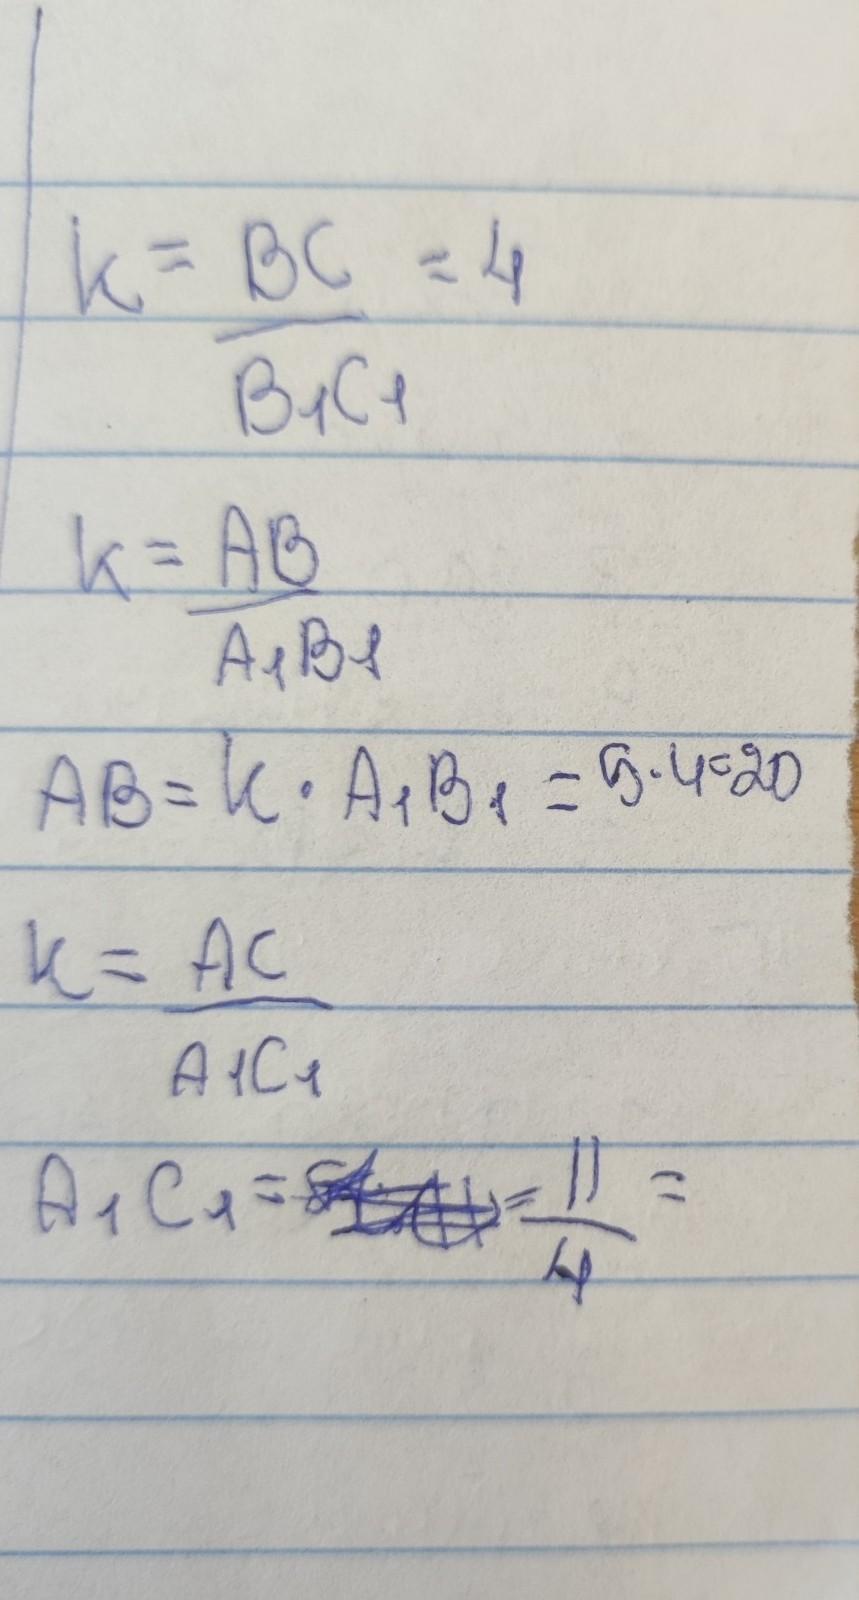 k = BC = 4
B1C1
k = AB
A1B1
AB = k · A1B1 = 5·4=20
k = AC
A1C1
A1C1 = = 11 =
4